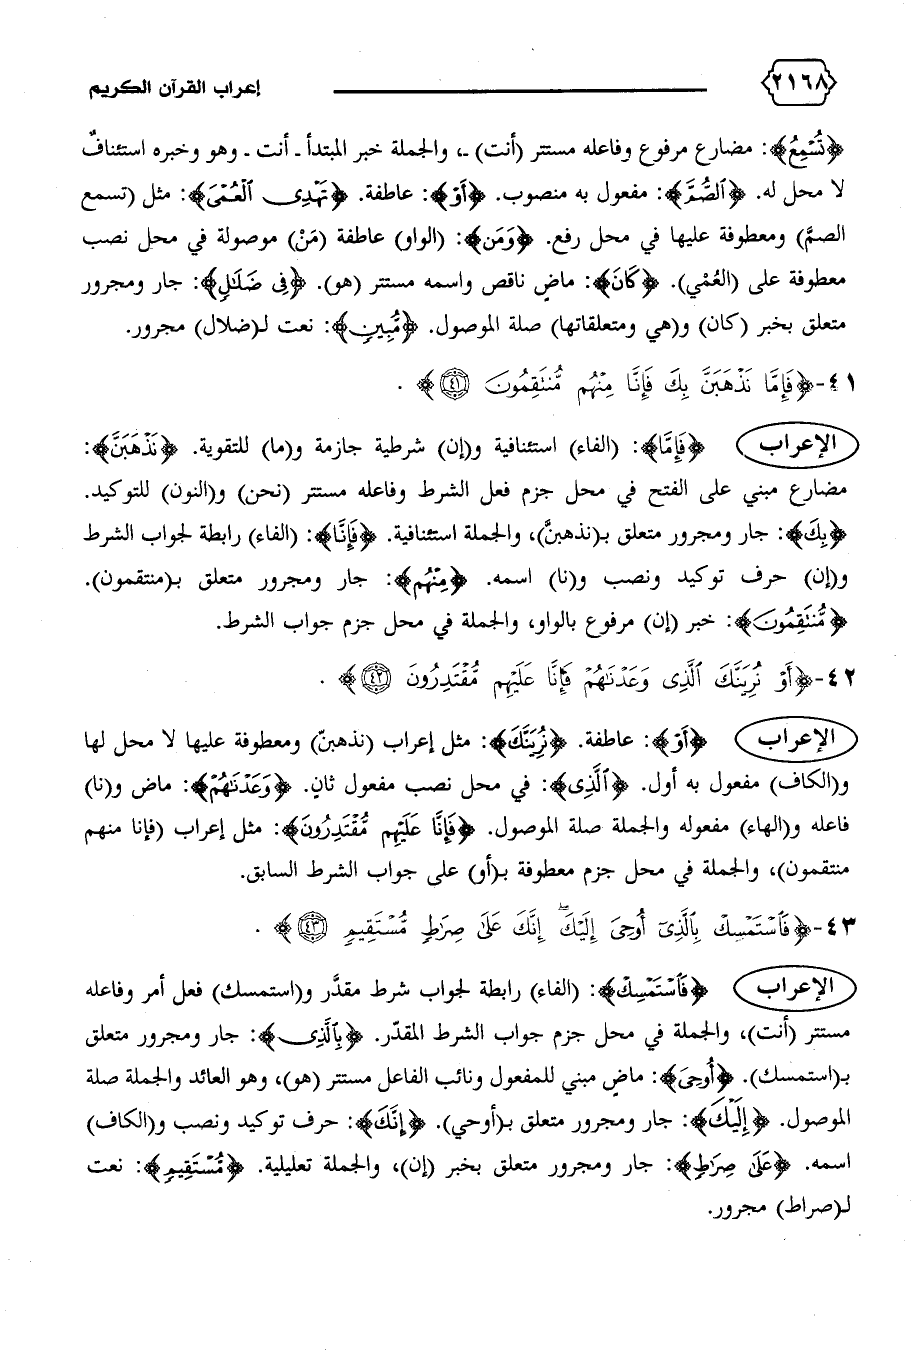 ٢١٦٨ إعراب القرآن الكريم
﴿تُسْمِعُ﴾: مضارع مرفوع وفاعله مستتر (أنت) ـ، والجملة خبر المبتدأ ـ أنت ـ وهو وخبره استئنافٌ
لا محل له. ﴿ٱلصُّمَّ﴾: مفعول به منصوب. ﴿أَوْ﴾: عاطفة. ﴿تَهْدِى ٱلْعُمْىَ﴾: مثل (تسمع
الصمَّ) ومعطوفة عليها في محل رفع. ﴿وَمَن﴾: (الواو) عاطفة (مَنْ) موصولة في محل نصب
معطوفة على (العُمْي). ﴿كَانَ﴾: ماضٍ ناقص واسمه مستتر (هو). ﴿فِى ضَلَٰلٍ﴾: جار ومجرور
متعلق بخبر (كان) و(هي ومتعلقاتها) صلة الموصول. ﴿مُّبِينٍ﴾: نعت لـ(ضلال) مجرور.
٤١-﴿فَإِمَّا نَذْهَبَنَّ بِكَ فَإِنَّا مِنْهُم مُّنتَقِمُونَ ٤١﴾ .
الإعراب ﴿فَإِمَّا﴾: (الفاء) استئنافية و(إن) شرطية جازمة و(ما) للتقوية. ﴿نَذْهَبَنَّ﴾:
مضارع مبني على الفتح في محل جزم فعل الشرط وفاعله مستتر (نحن) و(النون) للتوكيد.
﴿بِكَ﴾: جار ومجرور متعلق بـ(نذهبنَّ)، والجملة استئنافية. ﴿فَإِنَّا﴾: (الفاء) رابطة لجواب الشرط
و(إن) حرف توكيد ونصب و(نا) اسمه. ﴿مِنْهُم﴾: جار ومجرور متعلق بـ(منتقمون).
﴿مُّنتَقِمُونَ﴾: خبر (إن) مرفوع بالواو، والجملة في محل جزم جواب الشرط.
٤٢-﴿أَوْ نُرِيَنَّكَ ٱلَّذِى وَعَدْنَٰهُمْ فَإِنَّا عَلَيْهِم مُّقْتَدِرُونَ ٤٢﴾ .
الإعراب ﴿أَوْ﴾: عاطفة. ﴿نُرِيَنَّكَ﴾: مثل إعراب (نذهبنّ) ومعطوفة عليها لا محل لها
و(الكاف) مفعول به أول. ﴿ٱلَّذِى﴾: في محل نصب مفعول ثانٍ. ﴿وَعَدْنَٰهُمْ﴾: ماض و(نا)
فاعله و(الهاء) مفعوله والجملة صلة الموصول. ﴿فَإِنَّا عَلَيْهِم مُّقْتَدِرُونَ﴾: مثل إعراب (فإنا منهم
منتقمون)، والجملة في محل جزم معطوفة بـ(أو) على جواب الشرط السابق.
٤٣-﴿فَٱسْتَمْسِكْ بِٱلَّذِىٓ أُوحِىَ إِلَيْكَ ۖ إِنَّكَ عَلَىٰ صِرَٰطٍ مُّسْتَقِيمٍ ٤٣﴾ .
الإعراب ﴿فَٱسْتَمْسِكْ﴾: (الفاء) رابطة لجواب شرط مقدَّر و(استمسك) فعل أمر وفاعله
مستتر (أنت)، والجملة في محل جزم جواب الشرط المقدّر. ﴿بِٱلَّذِى﴾: جار ومجرور متعلق
بـ(استمسك). ﴿أُوحِىَ﴾: ماضٍ مبني للمفعول ونائب الفاعل مستتر (هو)، وهو العائد والجملة صلة
الموصول. ﴿إِلَيْكَ﴾: جار ومجرور متعلق بـ(أوحي). ﴿إِنَّكَ﴾: حرف توكيد ونصب و(الكاف)
اسمه. ﴿عَلَىٰ صِرَٰطٍ﴾: جار ومجرور متعلق بخبر (إن)، والجملة تعليلية. ﴿مُّسْتَقِيمٍ﴾: نعت
لـ(صراط) مجرور.